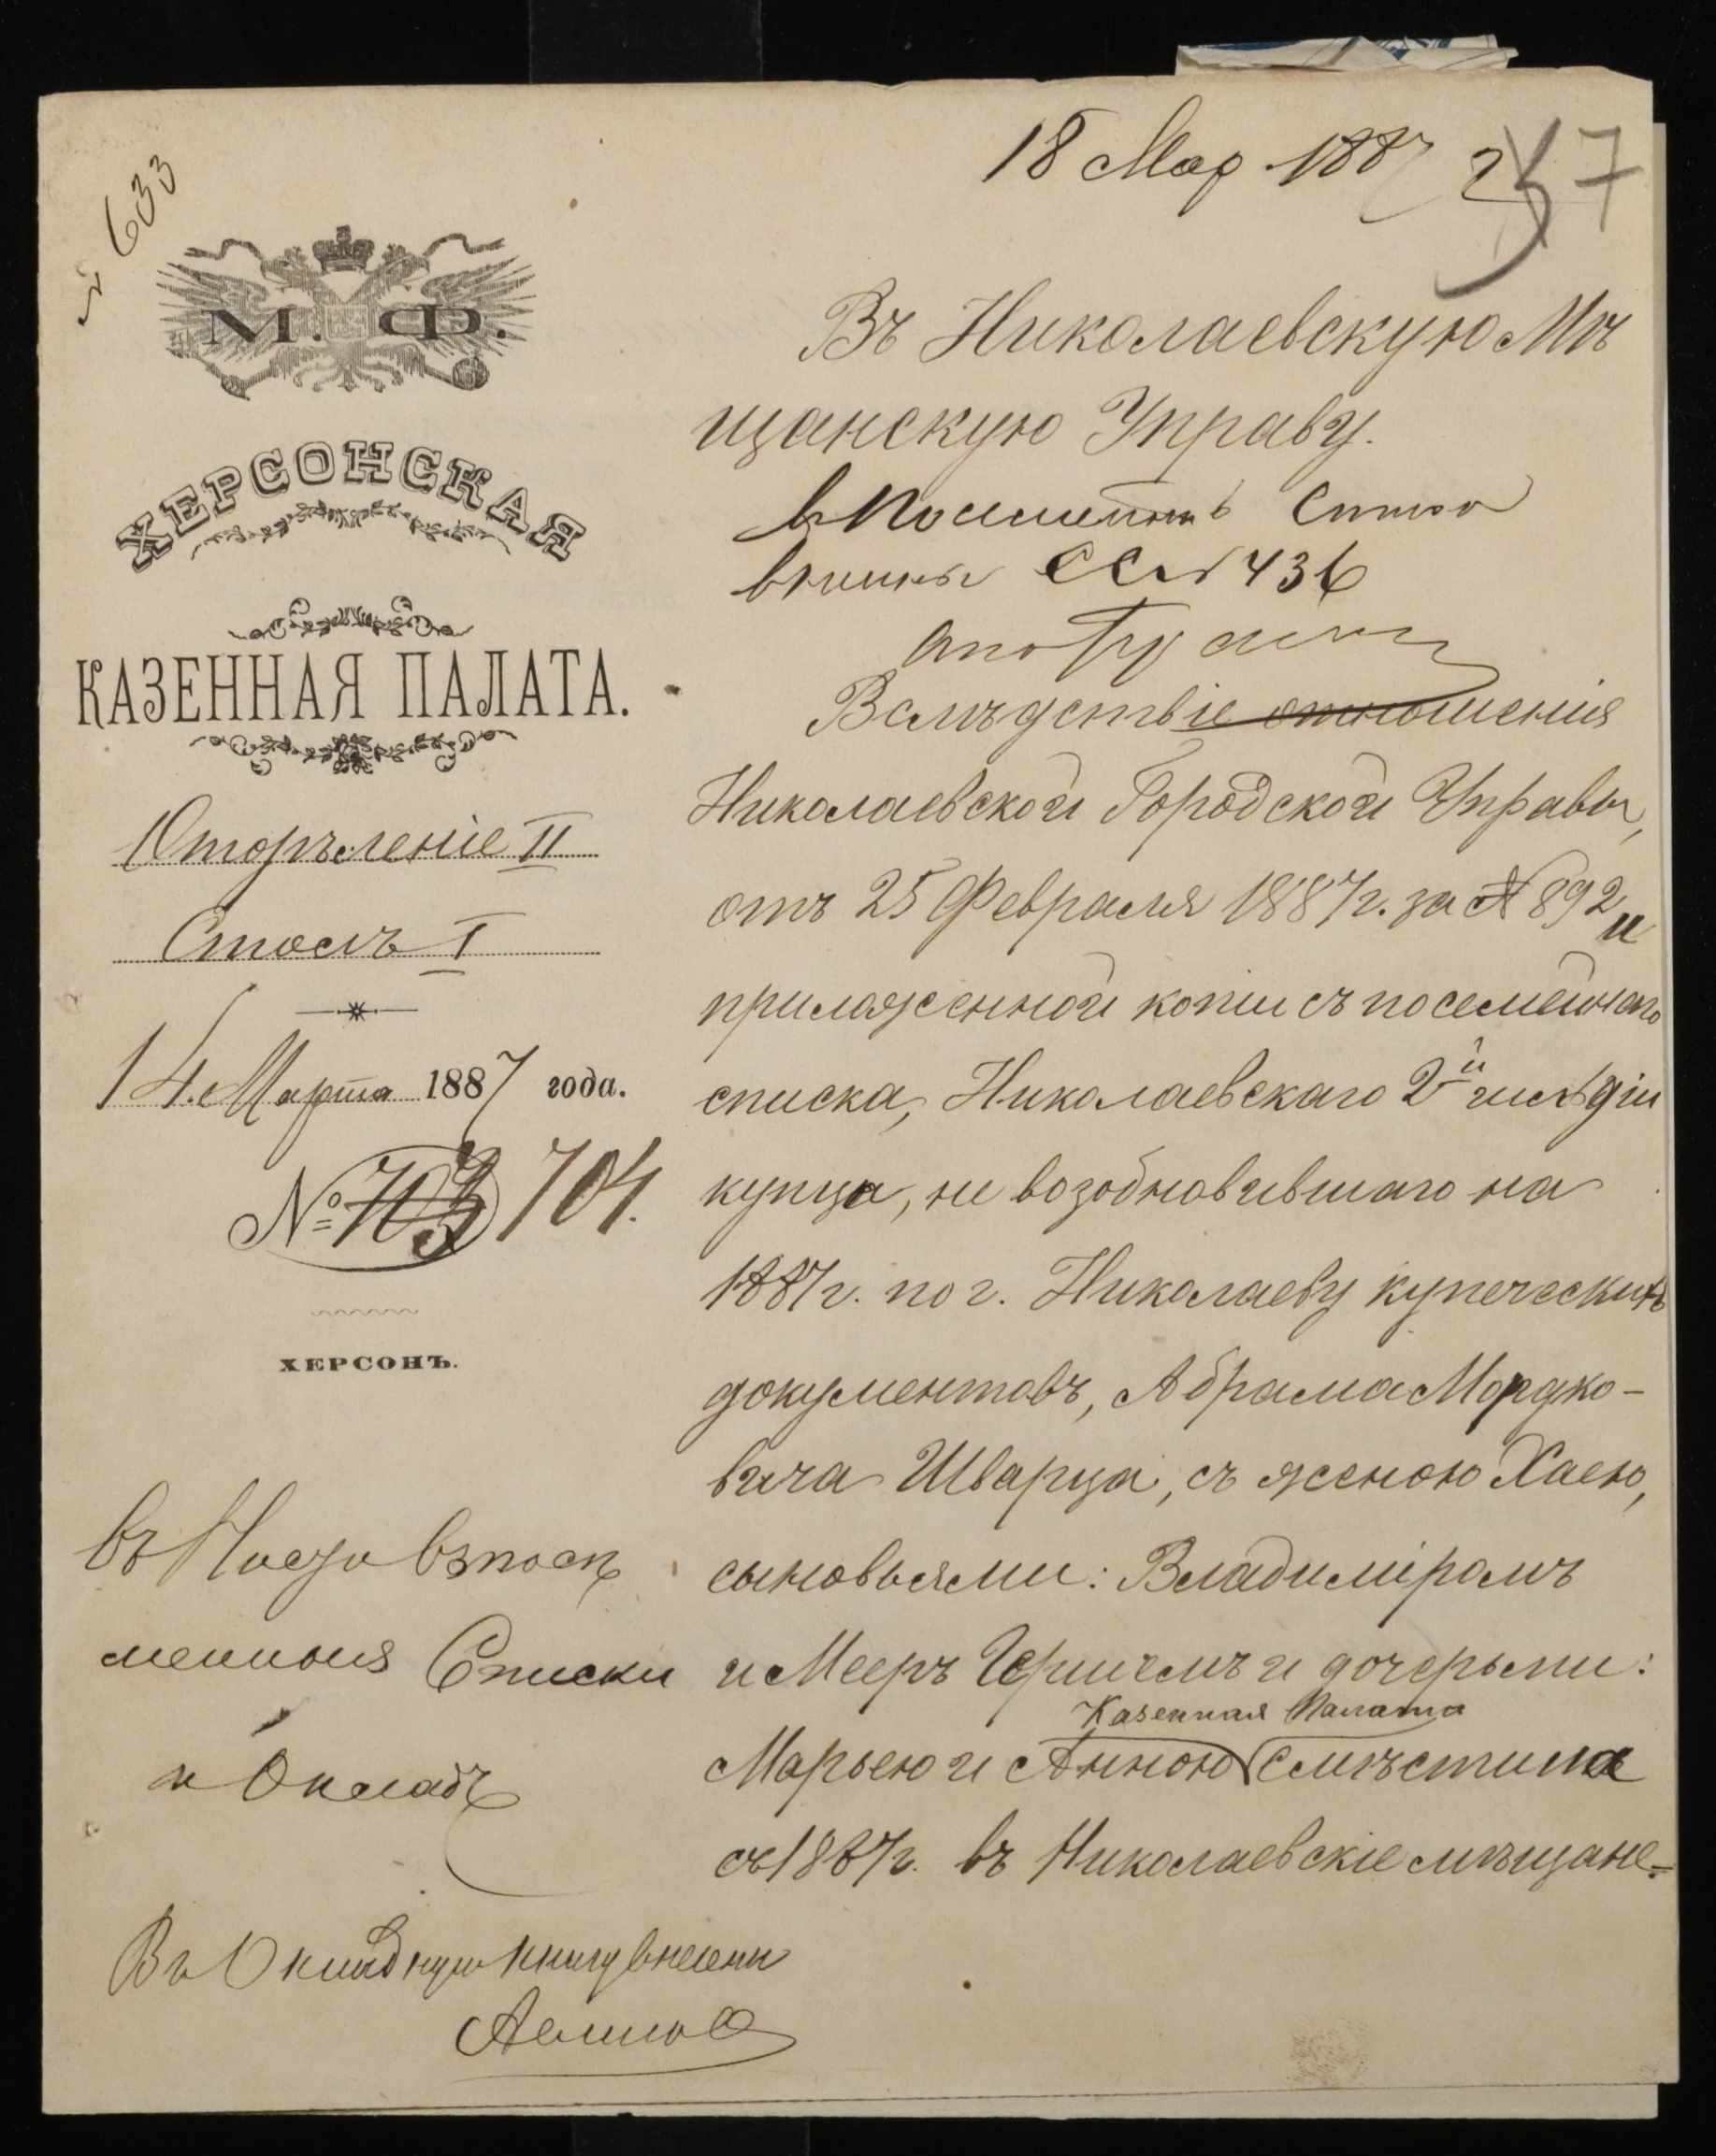 18 Мар 1887
№ 633
57
М. Ф.
ХЕРСОНСКАЯ
КАЗЕННАЯ ПАЛАТА.
Отдѣленіе II
Столъ I
14 Марта 1887 года.
№ 703 704.
ХЕРСОНЪ.
Въ Николаевскую Мѣ
щанскую Управу.
436
Вслѣдствіе отношенія
Николаевской Городской Управы,
отъ 25 Февраля 1887 г. за № 892 и
приложенной копіи съ посемейнаго
списка, Николаевскаго 2й гильдіи
купца, не возобновившаго на
1887 г. по г. Николаеву купеческихъ
документовъ, Абрама Мордко-
вича Шварца, съ женою Хаею,
сыновьями: Владиміромъ
и Мееръ Гершемъ и дочерьми:
Казенная Палата
Марьею и Анною смѣстила
съ 1887 г. въ Николаевскіе мѣщане
Списки
и Окладъ
Въ Окладную книгу внесенъ